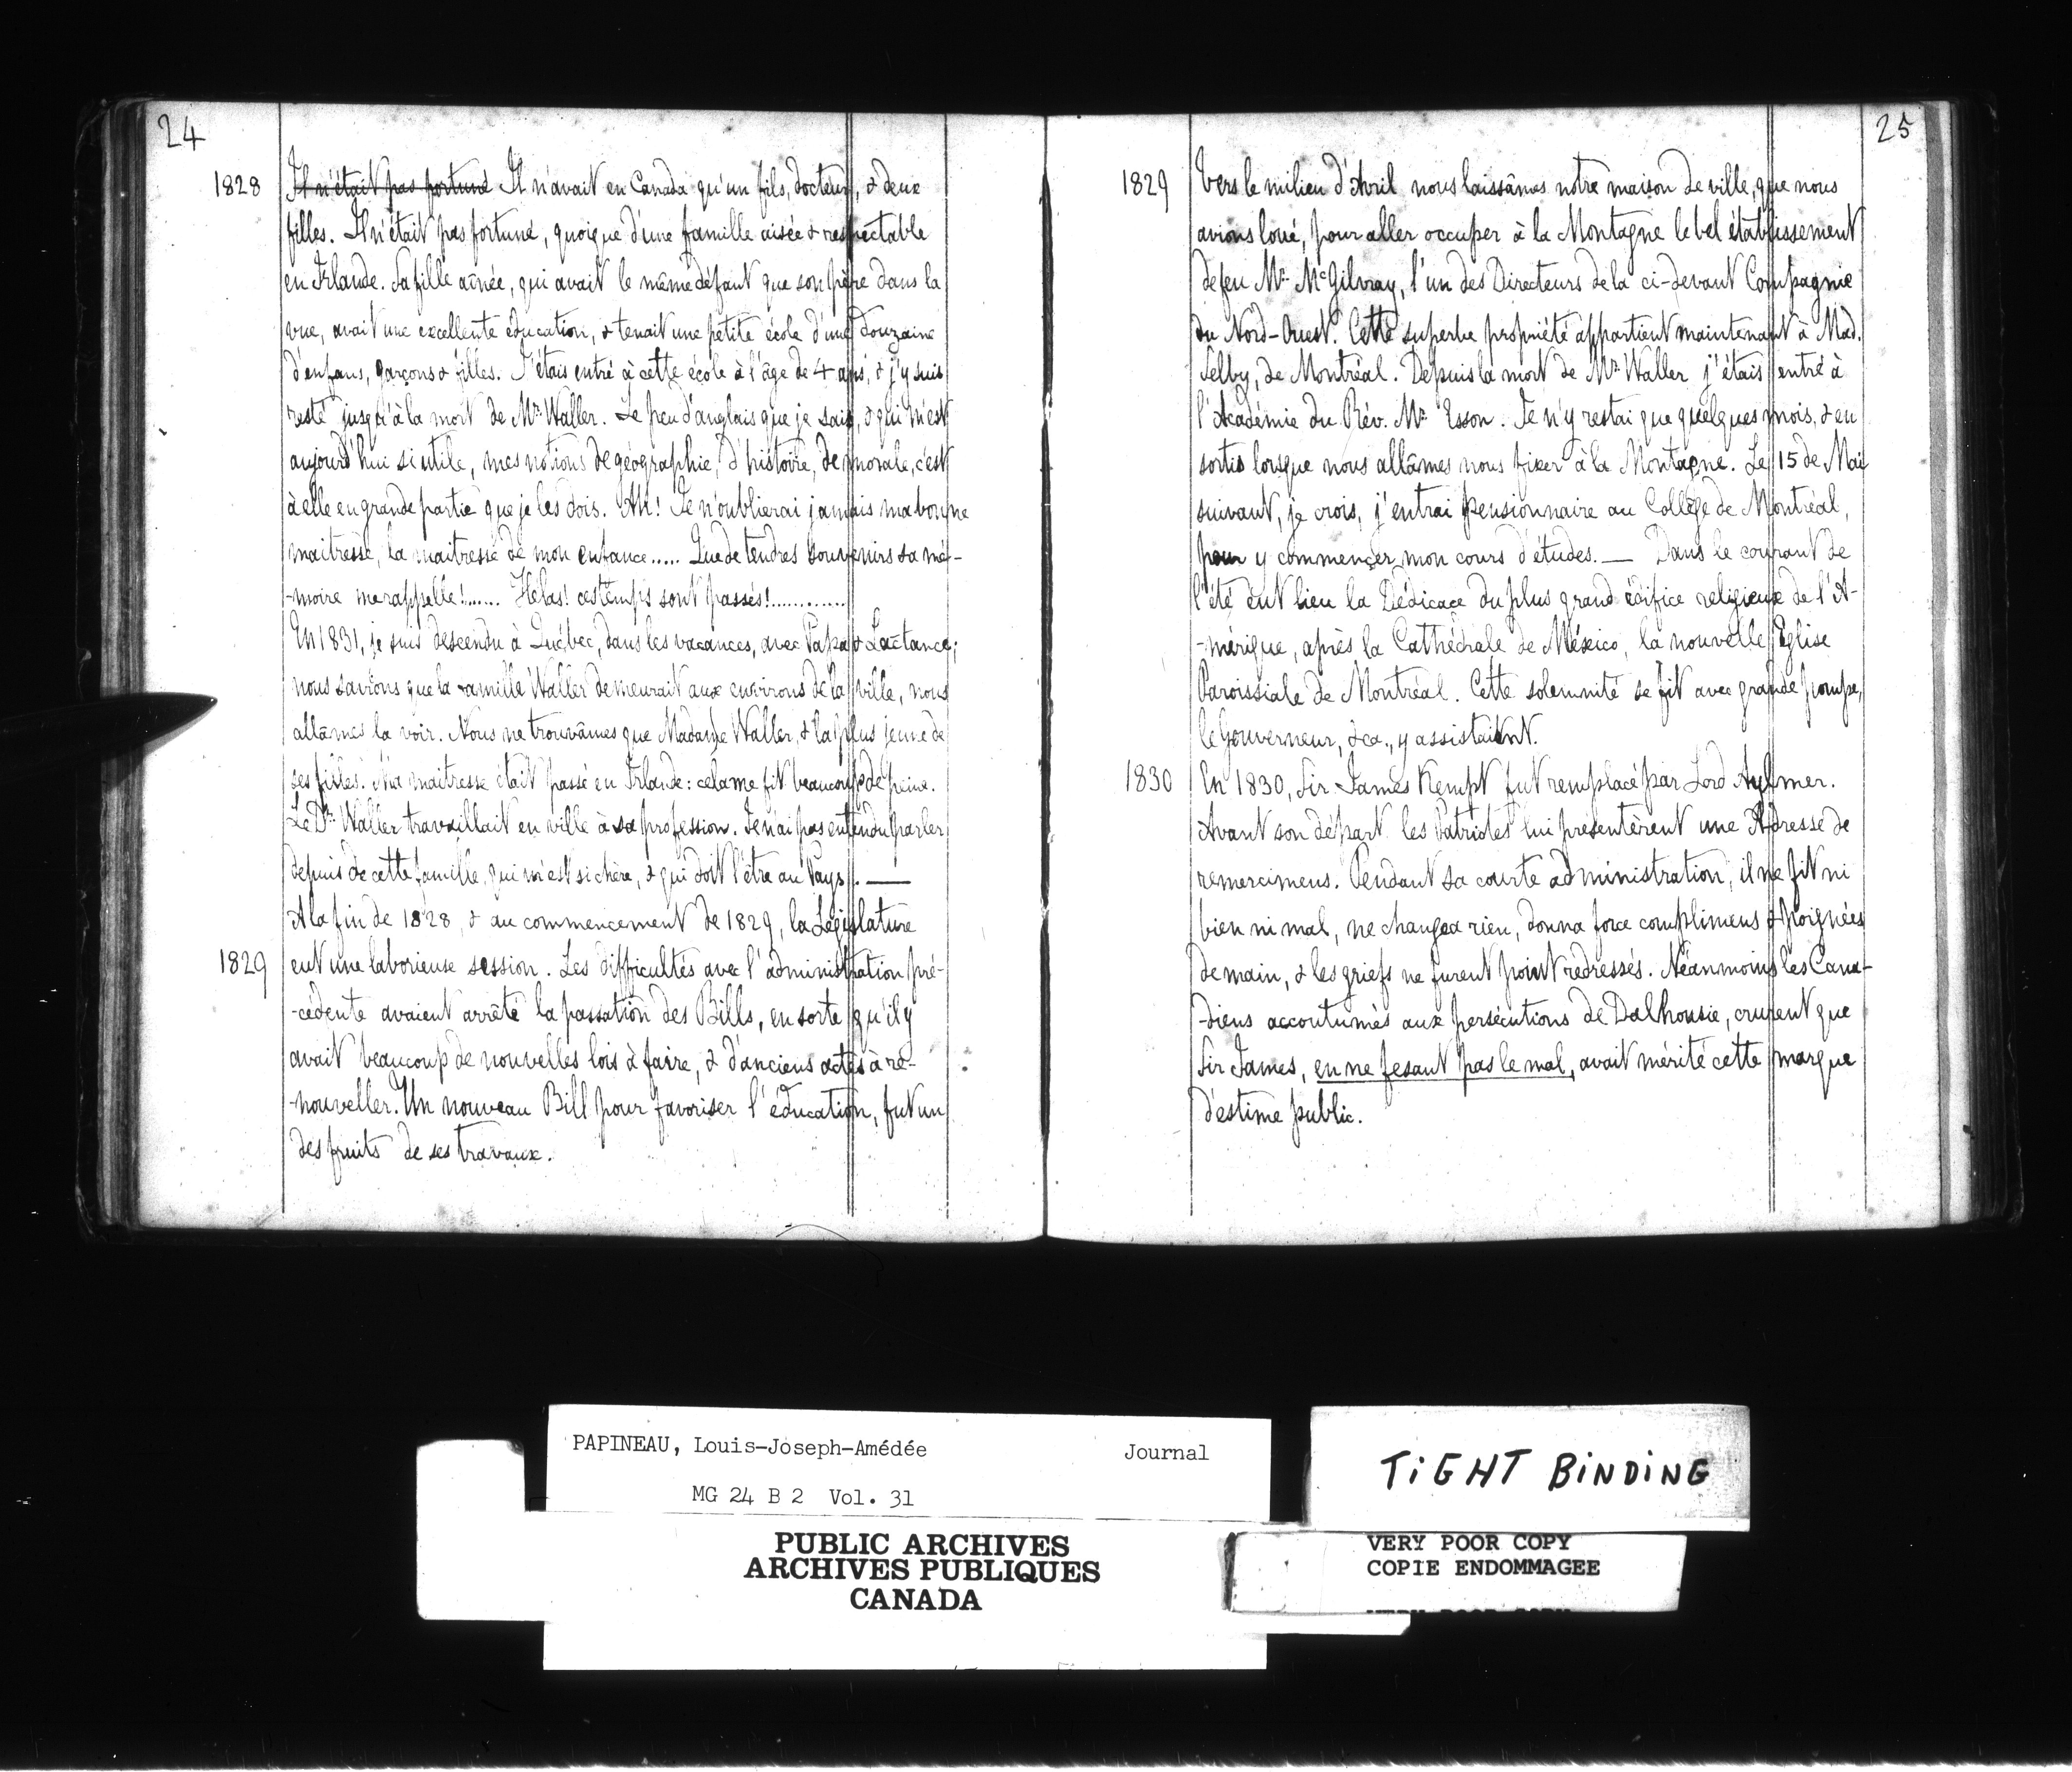 24
1828
Il n'était pas fortuné Il n'avait en Canada qu'un fils, docteur, & deux
filles. Il n'était pas fortuné, quoique d'une famille aisée & respectable
en Irlande. Sa fille aînée, qui avait le même défaut que son père dans la
vue, avait une excellente éducation, & tenait une petite école d'une douzaine
d'enfans, garçons & filles. J'étais entré à cette école à l'âge de 4 ans, & j'y suis
resté jusqu'à la mort de Mr. Waller. Le peu d'anglais que je sais, & qui m'est
aujourd'hui si utile, mes notions de géographie, d'histoire, de morale, c'est
à elle en grande partie que je les dois. Ah! Je n'oublierai jamais ma bonne
maitresse, la maitresse de mon enfance..... Que de tendres souvenirs sa mé-
-moire me rappelle!...... Hélas! ces temps sont passés!............
En 1831, je suis descendu à Québec, dans les vacances, avec Papa & Lactance;
nous savions que la famille Waller demeurait aux environs de la ville, nous
allâmes la voir. Nous ne trouvâmes que Madame Waller, & la plus jeune de
ses filles. Ma maitresse était passé en Irlande: cela me fit beaucoup de peine.
Le Dr. Waller travaillait en ville à sa profession. Je n'ai pas entendu parler
depuis de cette famille, qui m'est si chère, & qui doit l'être au Pays. —
A la fin de 1828, & au commencement de 1829, la Législature
1829
eut une laborieuse session. Les difficultés avec l'administration pré-
-cédente avaient arrêté la passation des Bills, en sorte qu'il y
avait beaucoup de nouvelles lois à faire, & d'anciens actes à re-
-nouveller. Un nouveau Bill pour favoriser l'éducation, fut un
des fruits de ses travaux.
25
1829
Vers le milieu d'Avril nous laissâmes notre maison de ville, que nous
avions loué, pour aller occuper à la Montagne le bel établissement
de feu Mr. McGilvray, l'un des Directeurs de la ci-devant Compagnie
du Nord-Ouest. Cette superbe propriété appartient maintenant à Mad.
Selby, de Montréal. Depuis la mort de Mr. Waller j'étais entré à
l'Académie du Rév. Mr. Esson. Je n'y restai que quelques mois, & en
sortis lorsque nous allâmes nous fixer à la Montagne. Le 15 de Mai
suivant, je crois, j'entrai pensionnaire au Collège de Montréal,
pour y commencer mon cours d'études. — Dans le courant de
l'été eut lieu la Dédicace du plus grand édifice religieux de l'A-
-mérique, après la Cathédrale de México, la nouvelle Eglise
Paroissiale de Montréal. Cette solemnité se fit avec grande pompe,
le Gouverneur, &ca., y assistaient.
1830
En 1830, Sir James Kempt fut remplacé par Lord Aylmer.
Avant son départ les Patriotes lui présentèrent une Adresse de
remercimens. Pendant sa courte administration, il ne fit ni
bien ni mal, ne changea rien, donna force complimens & poignées
de main, & les griefs ne furent point redressés. Néanmoins les Cana-
-diens accoutumés aux persécutions de Dalhousie, crurent que
Sir James, en ne fesant pas le mal, avait mérité cette marque
d'estime public.
PAPINEAU, Louis-Joseph-Amédée Journal
MG 24 B 2 Vol. 31
PUBLIC ARCHIVES
ARCHIVES PUBLIQUES
CANADA
TIGHT BINDING
VERY POOR COPY
COPIE ENDOMMAGEE